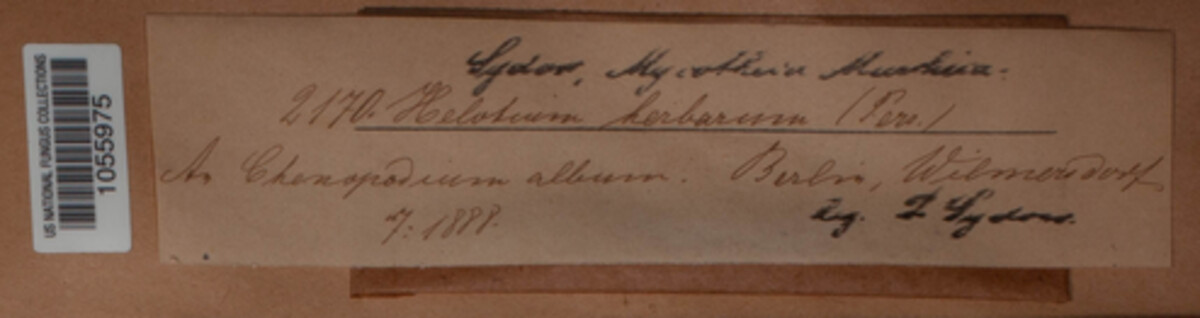 US NATIONAL FUNGUS COLLECTIONS
1055975
Sydow, Mycotheca Marchica.
2170. Helotium herbarum (Pers.)
An Chenopodium album. Berlin, Wilmersdorf
7. 1888.
leg. P. Sydow.